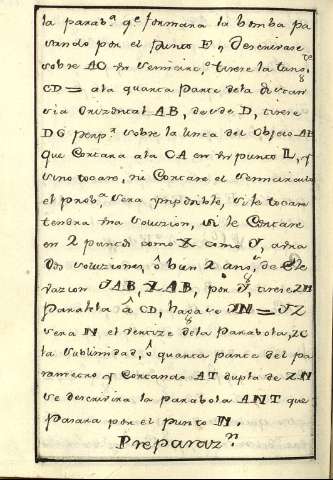 la parab.ª q.e formara la bomba pa
sando por el punto E, y descrivase
sobre AC un semicirc.º tirese la tang.te
CD = ala quarta parte dela distan
cia orizontal AB, desde D, tirese
DG perp.r sobre la linea del objeto AB
que Cortara ala CA en un punto L, y
sino tocare, ni Cortare el semicirculo
el prob.ª sera ympisible, si le tocare
tendra una soluzion, si le Cortare
en 2 puntos como X como J, avra
dos soluziones, ô ban 2 ang.s de Ele
vazion JAB XAB, por J, tirese ZN
Paralela â CD, hagase JN = JZ
sera N el vertize dela Parabola, ZC
la sublimidad, ô quarta parte del pa
rametro y Cortando AT dupla de ZN
se descrivira la parabola ANT que
pasara por el punto N.
Preparaz.n